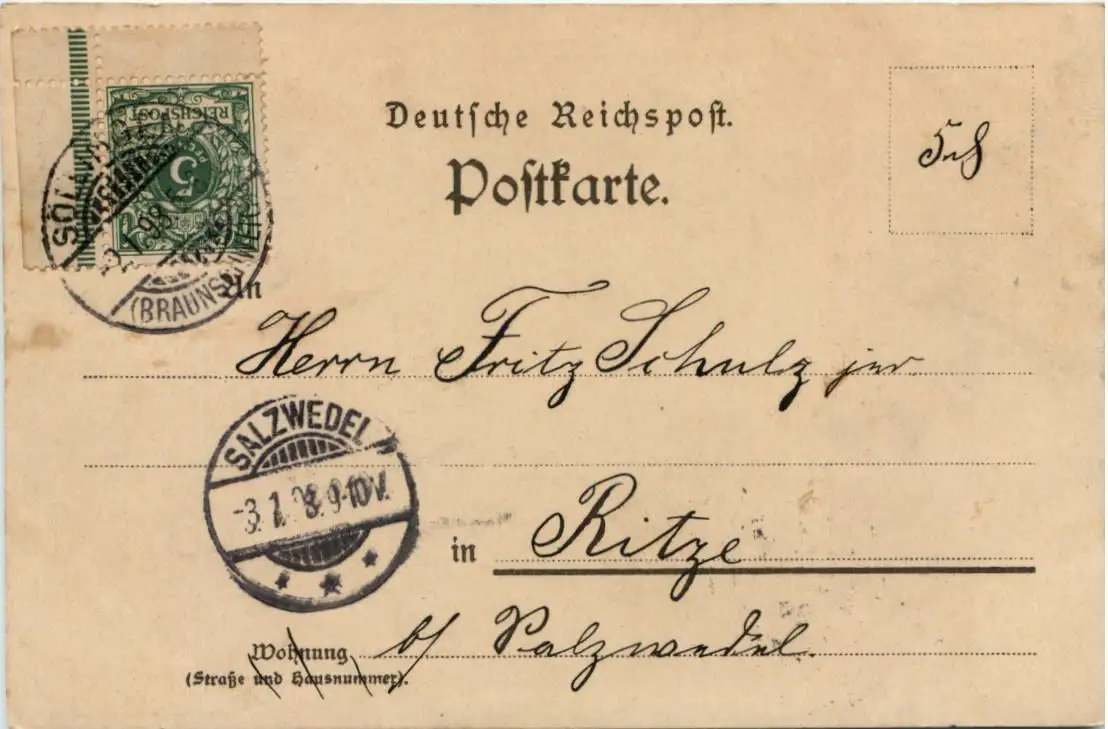 REICHSPOST
5
Deutsche Reichspost.
Postkarte.
(BRAUNSCHWEIG)
An
Herrn Fritz Schulz jun
SALZWEDEL
-3.1.98.9-10V.
in Ritze
b/ Salzwedel.
Wohnung
(Straße und Hausnummer).